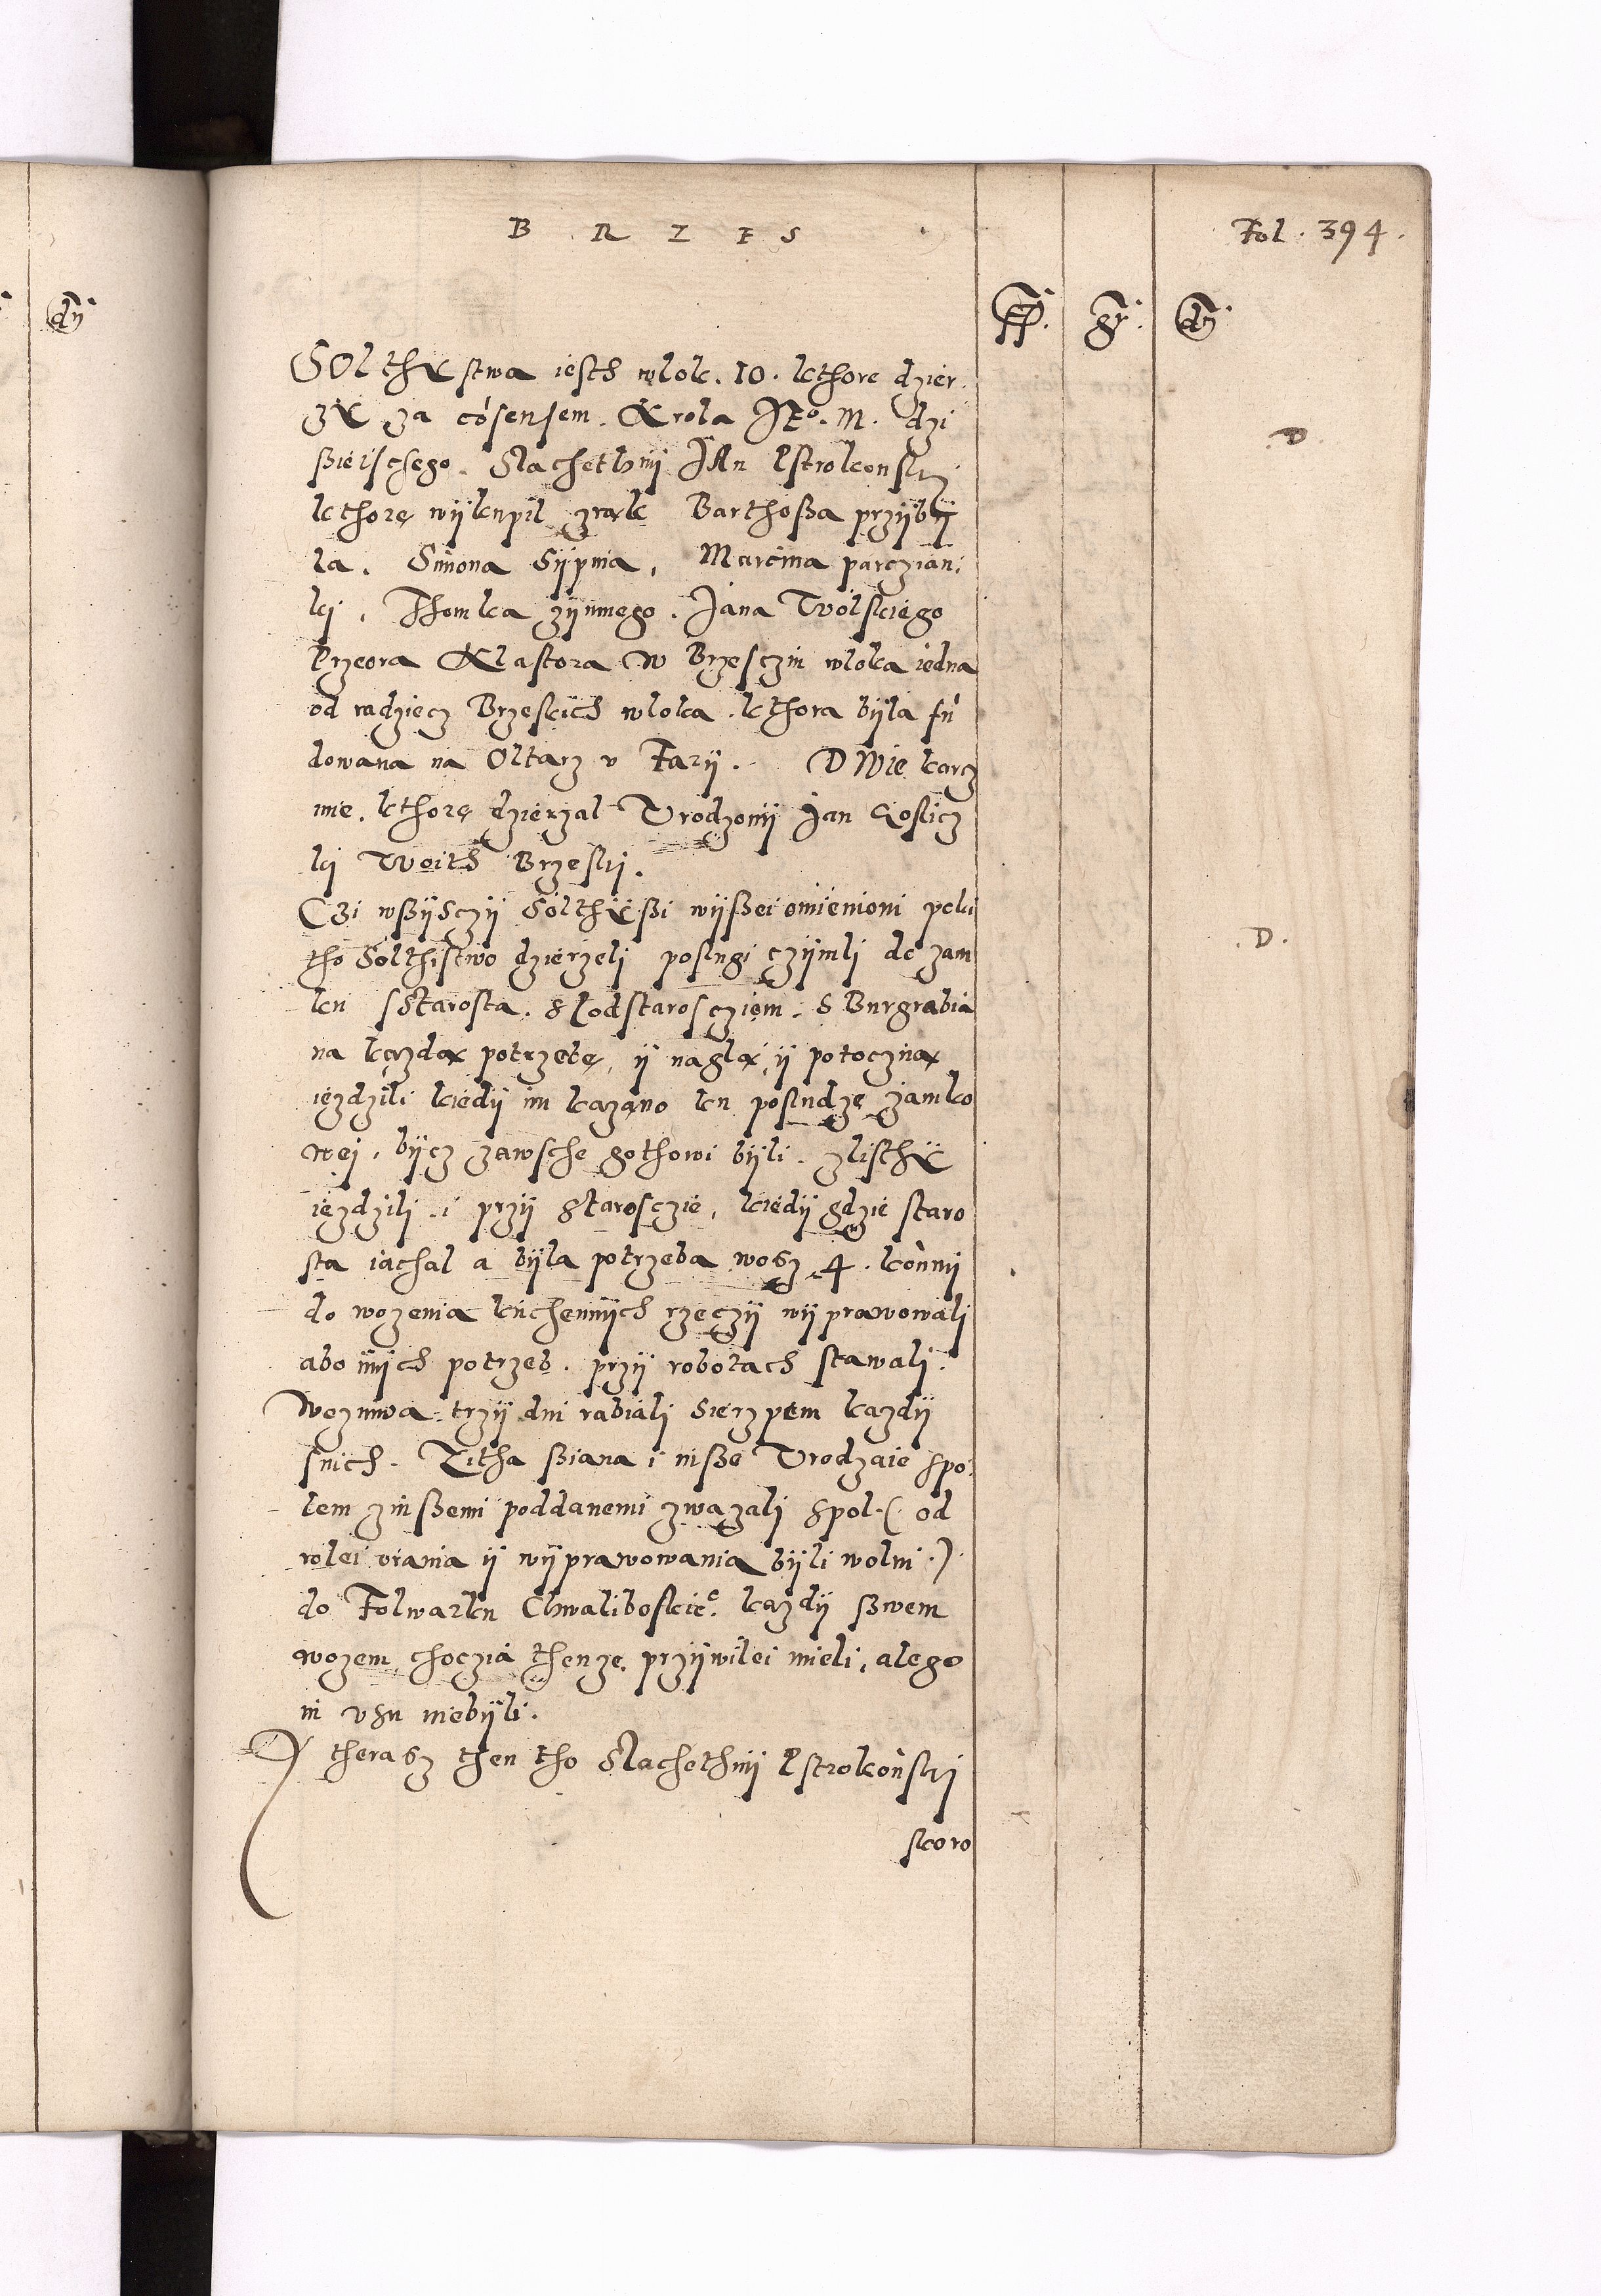 B R Z E S
Fol. 394.
ff. gr. d.
SOlthistwa iesth wlok. 10. kthore dzier
zy za cósensem. Krola JEo. M. dzi
ßieischego. Slachethnij JAn Ostrokonski
kthorę wijkupil z rąk Barthoßa przijbij
la. Simona Sijpnia, Marcina parczian,
ki, Thomka zijmnego. Jana Wolskiego
Przeora Klastora W Brzesczin wloka iedna
od radziecz Brzeskich wloka. kthora bijla fu
dowana na Oltarz v Farij. DWie karcz
mie. kthorę dzierzal Vrodzonij Jan Kosicz
ki Woith Brzeski.
Czi wßijsczij Solthißi wijßei omienioni poki
tho Solthistwo dzierzeli poslugi czijnili do zam
ku s Starosta. s Podstarosczięm. S Burgrabia
na każdą potrzebę, ij naglą, ij potoczną
ięzdzili kiedij im kazano ku posludzę zamko
wej, bijcz zawsche gothowi bijli. zlisthij
ięzdzili i przij Starosczie, kiedij gdzie staro
sta iachal a bijla potrzeba wosz 4. konnij
do wozenia kuchennijch rzeczij wijprawowali
abo inijch potrzeb. przij robotach stawali.
Wezniwa trzij dni rabiali Sierzpem kazdij
snich. Zitha ßiana i inße Vrodzaie spo,
lem zinßemi poddanemi zwazali spol. (. od
rolei orania ij wijprawowania bijli wolni .)
do Folwarku Chwaliboskieo. kazdij swem
wozem, choczia thenze przijwilei mieli, alego
in vsu niebijli.
D.
D.
therasz then tho Slachethnij Ostrokonski
skoro